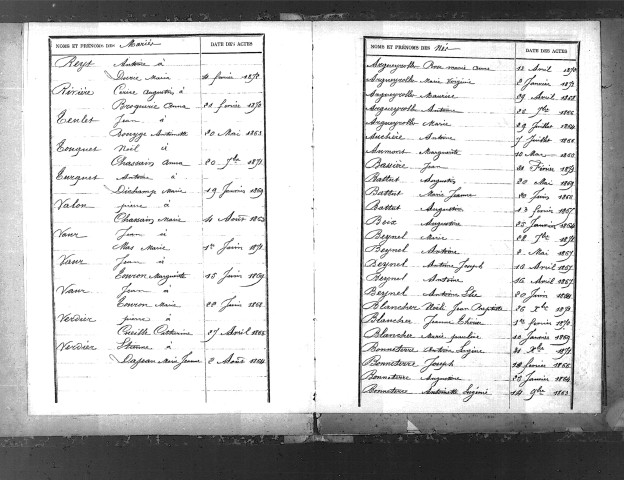 NOMS ET PRÉNOMS DES Mariés DATE DES ACTES
Reyt Antoine à
Marie 4 février 1872
Rivière Augustin à
Anna 22 février 1870
Teulet Jean à
Bouyge Antoinette 20 Mai 1863
Touquet Noël à
Chassain Anna 20 7bre 1871
Antoine à
Dechamp Marie 19 Janvier 1869
Valon pierre à
Chassain Marie 4 Août 1862
Vaur Jean à
Mas Marie 1er Juin 1872
Vaur Jean à
Marguerite 15 Juin 1869
Vaur Jean à
Marie 22 Juin 1868
Verdier pierre à
Catherine 27 Avril 1866
Verdier Etienne à
Marie Jeanne 2 Août 1864
NOMS ET PRÉNOMS DES Nés DATE DES ACTES
Argueyrolle Rose marie Anna 12 Avril 1870
Argueyrolle Marie Virginie 2 Janvier 1872
Argueyrolle Maurice 29 Avril 1868
Argueyrolle Antoine 26 7bre 1866
Argueyrolle Marie 29 Juillet 1864
Antoine 7 Juillet 1866
Aumont Marguerite 10 Mars
Jean Février 1873
Battut Augustin 20 Mai 1869
Battut Marie Jeanne 20 Juin
Battut Augustin 13 février 1867
Boix Augustine 25 Janvier 1864
Beynel Marie 22 7bre 1872
Beynel Antoine 2 Mai 1867
Beynel Antoine Joseph 16 Avril 1867
Beynel Antoine 16 Avril 1867
Beynel Antoine Elie 20 Juin
Blancher Noël Jean Baptiste 26 Xbre
Blancher Jeanne 1er février 1872
Blancher Marie pauline 10 Janvier 1869
Bonneterre Antoine Eugène Xbre 1872
Bonneterre Joseph 18 février
Bonneterre Augustine 23 Janvier 1864
Bonneterre Antoinette Eugénie 14 9bre 1863